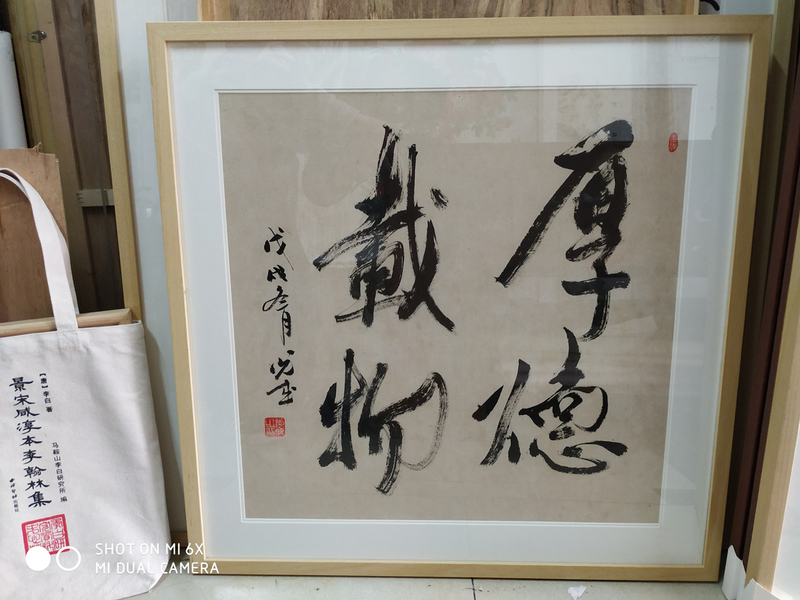 厚德
載物
戊戌冬月
【唐】李白 著
景宋咸淳本李翰林集
马鞍山李白研究所 编
西泠印社出版社
SHOT ON MI 6X
MI DUAL CAMERA